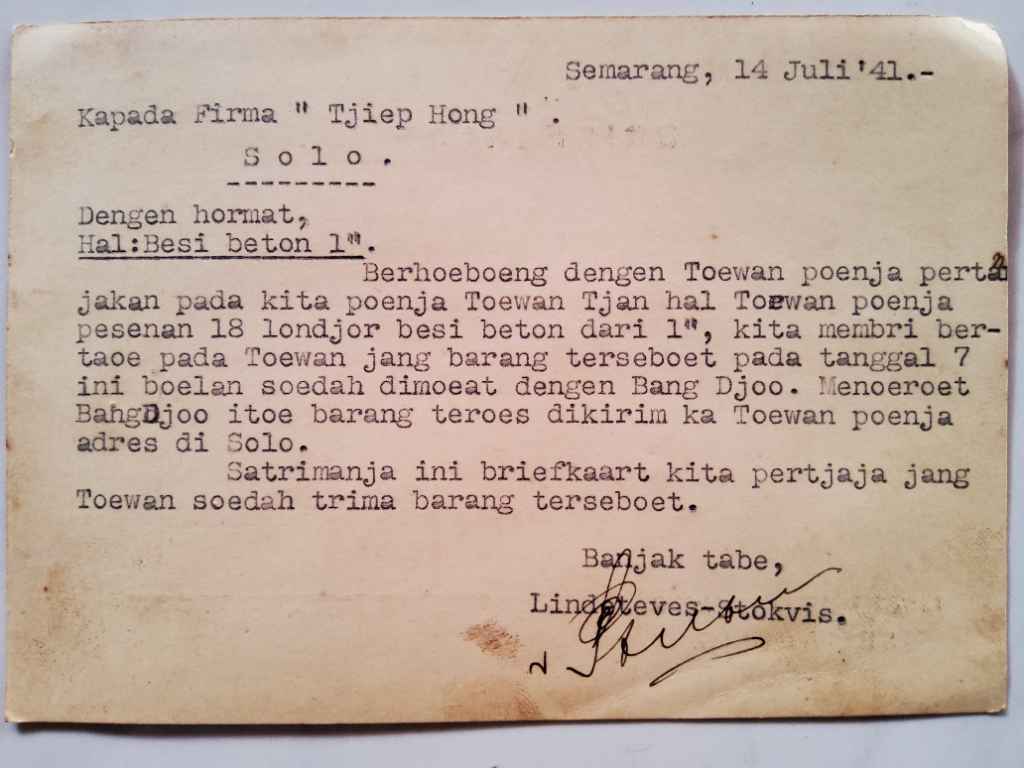 Semarang, 14 Juli '41.-
Kapada Firma " Tjiep Hong " .
S o l o .
---------
Dengen hormat,
Hal:Besi beton 1".
Berhoeboeng dengen Toewan poenja perta
jakan pada kita poenja Toewan Tjan hal Toewan poenja
pesenan 18 londjor besi beton dari 1", kita membri ber-
taoe pada Toewan jang barang terseboet pada tanggal 7
ini boelan soedah dimoeat dengen Bang Djoo. Menoeroet
BangDjoo itoe barang teroes dikirim ka Toewan poenja
adres di Solo.
Satrimanja ini briefkaart kita pertjaja jang
Toewan soedah trima barang terseboet.
Banjak tabe,
Lindeteves-Stokvis.